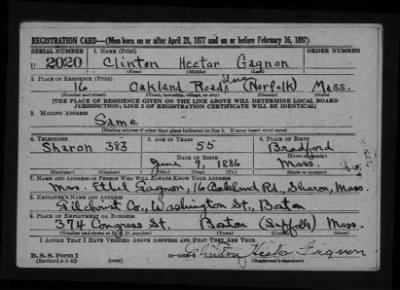 REGISTRATION CARD—(Men born on or after April 28, 1877 and on or before February 16, 1897)
SERIAL NUMBER 1. NAME (Print) ORDER NUMBER
U 2020 Clinton Hector Gagnon
(First) (Middle) (Last)
2. PLACE OF RESIDENCE (Print)
16 Oakland Road, Sharon (Norfolk) Mass.
(Number and street) (Town, township, village, or city) (County) (State)
[THE PLACE OF RESIDENCE GIVEN ON THE LINE ABOVE WILL DETERMINE LOCAL BOARD
JURISDICTION; LINE 2 OF REGISTRATION CERTIFICATE WILL BE IDENTICAL]
3. MAILING ADDRESS
Same
[Mailing address if other than place indicated on line 2. If same insert word same]
4. TELEPHONE 5. AGE IN YEARS 6. PLACE OF BIRTH
Sharon 383 55 Bradford
DATE OF BIRTH (Town or county)
June 9, 1886 Mass.
(Exchange) (Number) (Mo.) (Day) (Yr.) (State or country)
7. NAME AND ADDRESS OF PERSON WHO WILL ALWAYS KNOW YOUR ADDRESS
Mrs. Ethel Gagnon, 16 Oakland Rd., Sharon, Mass
8. EMPLOYER'S NAME AND ADDRESS
Gilchrist Co., Washington St., Boston
9. PLACE OF EMPLOYMENT OR BUSINESS
394 Congress St. Boston (Suffolk) Mass.
(Number and street or R. F. D. number) (Town) (County) (State)
I AFFIRM THAT I HAVE VERIFIED ABOVE ANSWERS AND THAT THEY ARE TRUE.
D. S. S. Form 1 Clinton Hector Gagnon
(Revised 4-1-42) (over) (Registrant's signature)